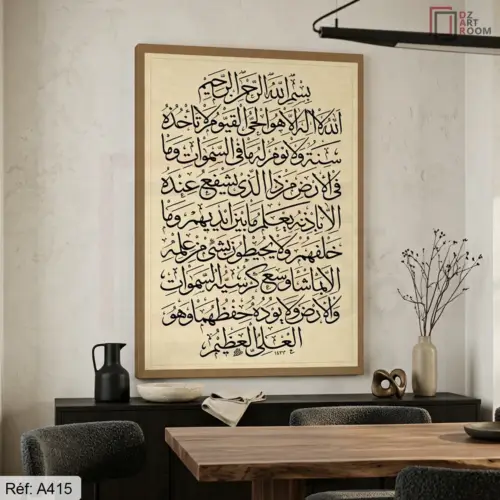 DZ
ART
ROOM
بسم الله الرحمن الرحيم
الله لا اله الا هو الحي القيوم لا تأخذه
سنة ولا نوم له ما في السموات وما
في الارض من ذا الذي يشفع عنده
الا باذنه يعلم ما بين ايديهم وما
خلفهم ولا يحيطون بشئ من علمه
الا بما شاء وسع كرسيه السموات
والارض ولا يؤده حفظهما وهو
العلي العظيم
١٤٣٣
Réf: A415